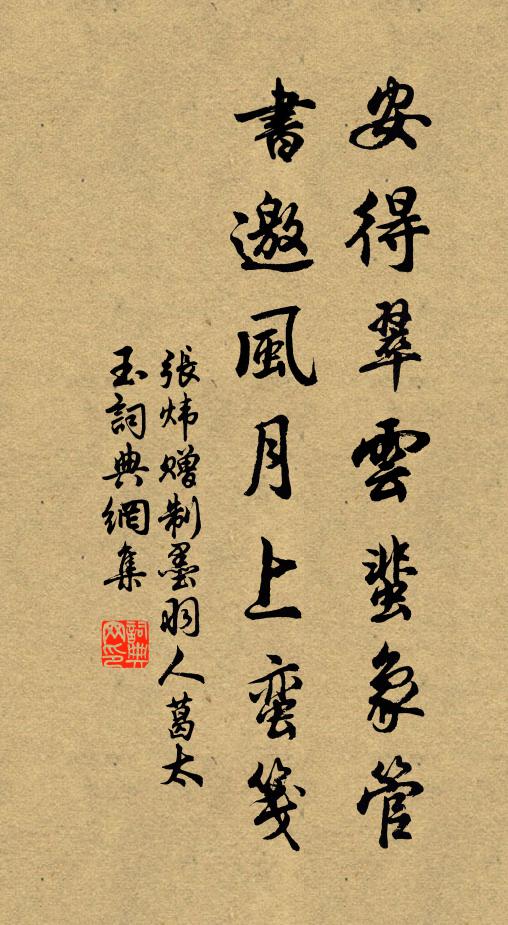 安得翠雲蜚象管
書邀風月上蛮箋
張炜赠制墨羽人葛太
玉詞典網集
詞典网印